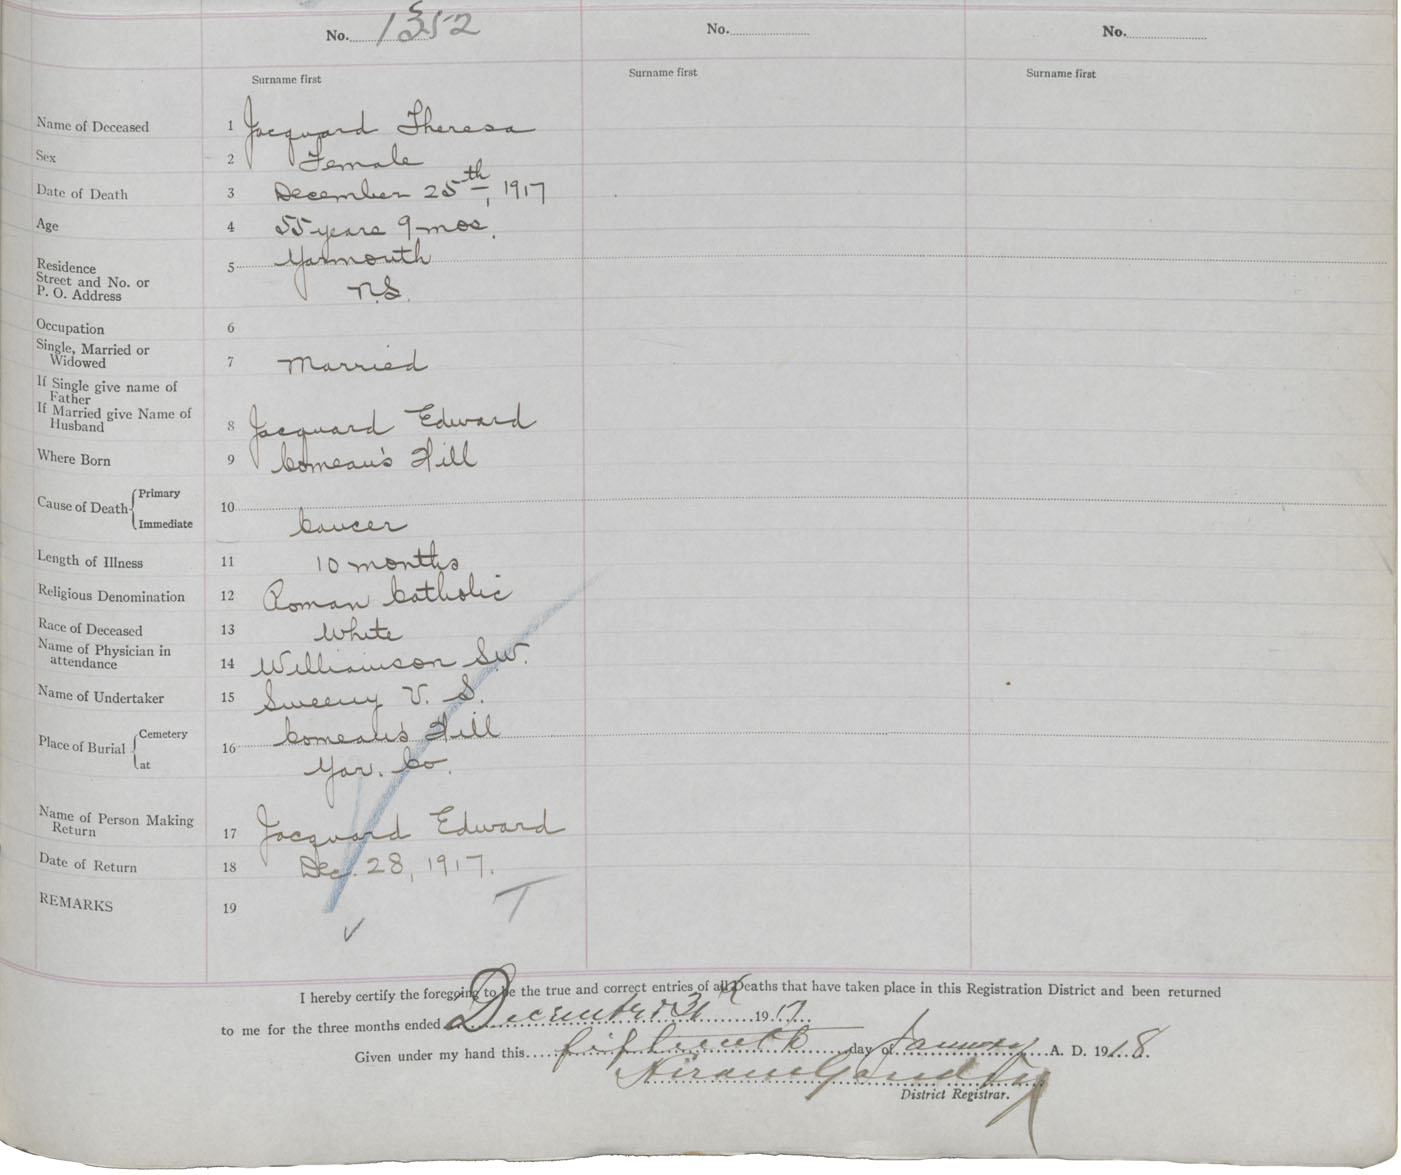 No. 1352 No. No.
Surname first Surname first Surname first
Name of Deceased 1 Jacquard Theresa
Sex 2 Female
Date of Death 3 December 25th, 1917
Age 4 55 years 9 mos.
Residence
Street and No. or
P. O. Address
5 Yarmouth
N.S.
Occupation 6
Single, Married or
Widowed
7 Married
If Single give name of
Father
If Married give Name of
Husband
8 Jacquard Edward
Where Born 9 Comeau's Hill
Cause of Death { Primary
Immediate
10
Cancer
Length of Illness 11 10 months
Religious Denomination 12 Roman Catholic
Race of Deceased 13 White
Name of Physician in
attendance
14 Williamson S.W.
Name of Undertaker 15 Sweeny V. S.
Place of Burial { Cemetery
at
16 Comeau's Hill
Yar. Co.
Name of Person Making
Return
17 Jacquard Edward
Date of Return 18 Dec. 28, 1917.
REMARKS 19
T
I hereby certify the foregoing to be the true and correct entries of all Deaths that have taken place in this Registration District and been returned
to me for the three months ended December 31 1917
Given under my hand this fifteenth day of January A. D. 1918.
Hiram
District Registrar.